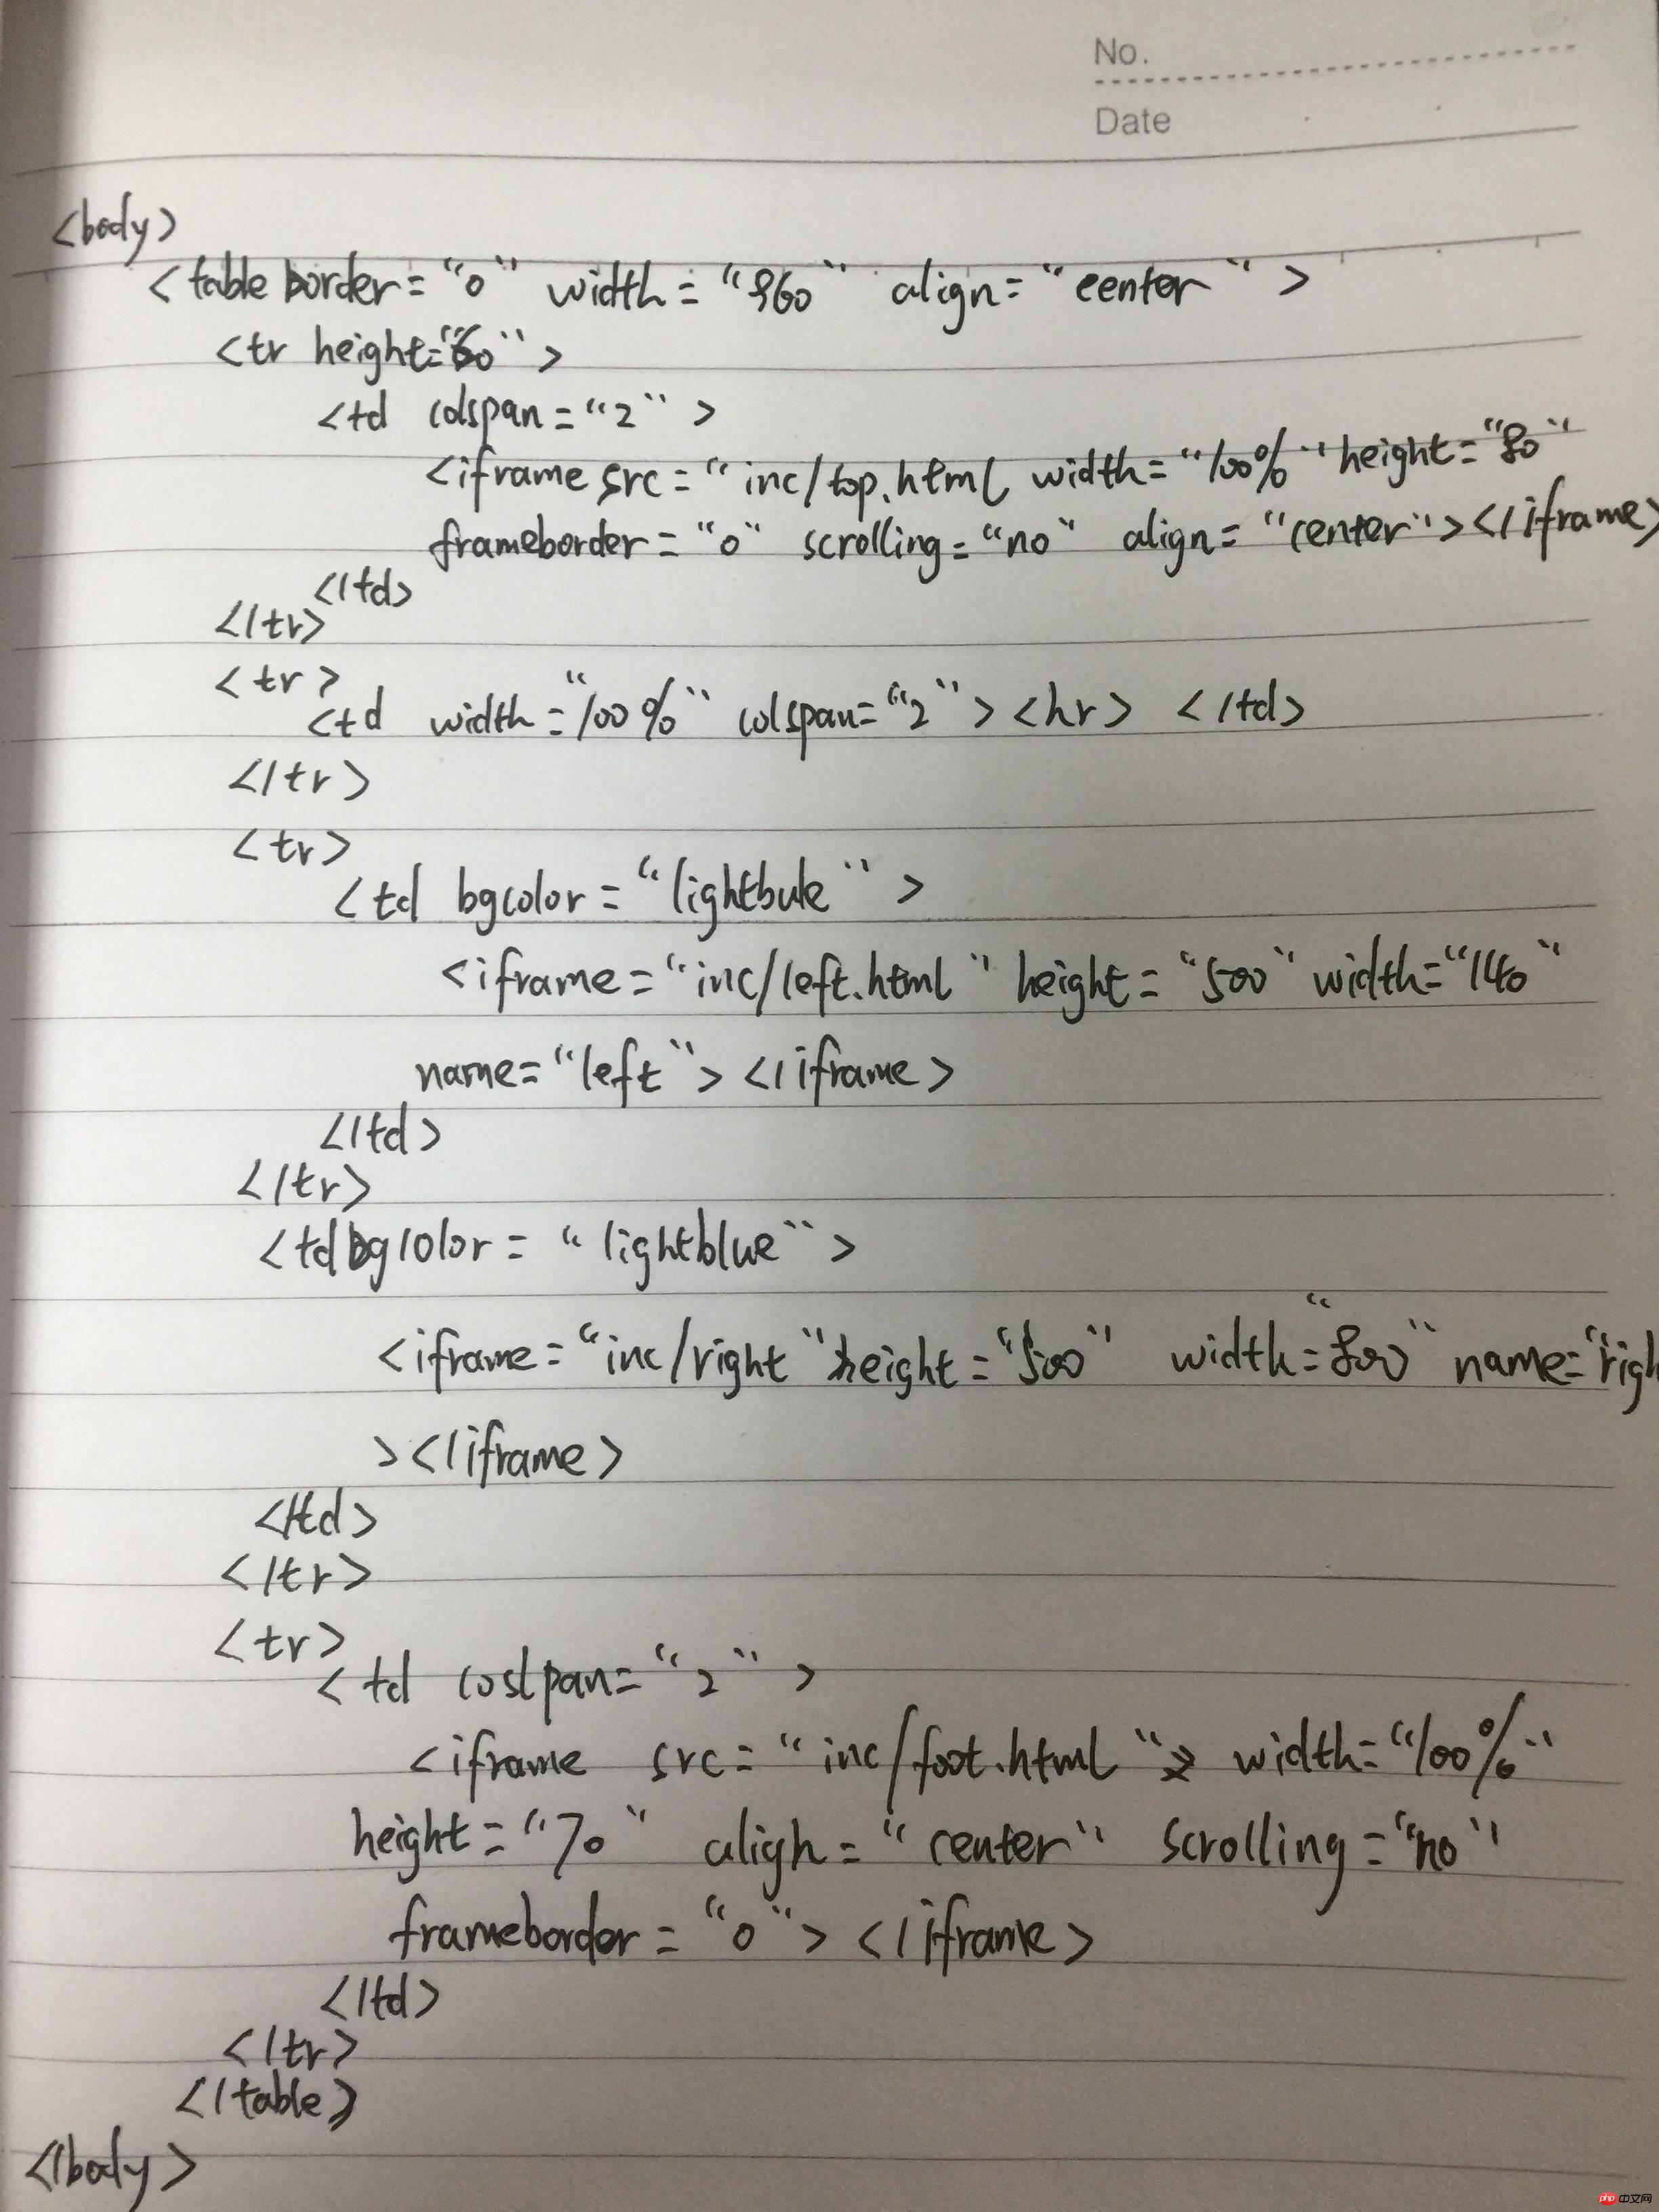 No.
Date
<body>
<table border="0" width="960" align="center">
<tr height="60">
<td colspan="2">
<iframe src="inc/top.html width="100%" height="80"
frameborder="0" scrolling="no" align="center"></iframe>
</td>
</tr>
<tr>
<td width="100%" colspan="2"><hr> </td>
</tr>
<tr>
<td bgcolor="lightbule">
<iframe="inc/left.html" height="500" width="140"
name="left"></iframe>
</td>
</tr>
<td bgcolor="lightblue">
<iframe="inc/right" height="500" width="800" name="righ
></iframe>
</td>
</tr>
<tr>
<td coslpan="2">
<iframe src="inc/foot.html" width="100%"
height="70" aligh="center" scrolling="no"
frameborder="0"></iframe>
</td>
</tr>
</table>
</body>
php 中文网